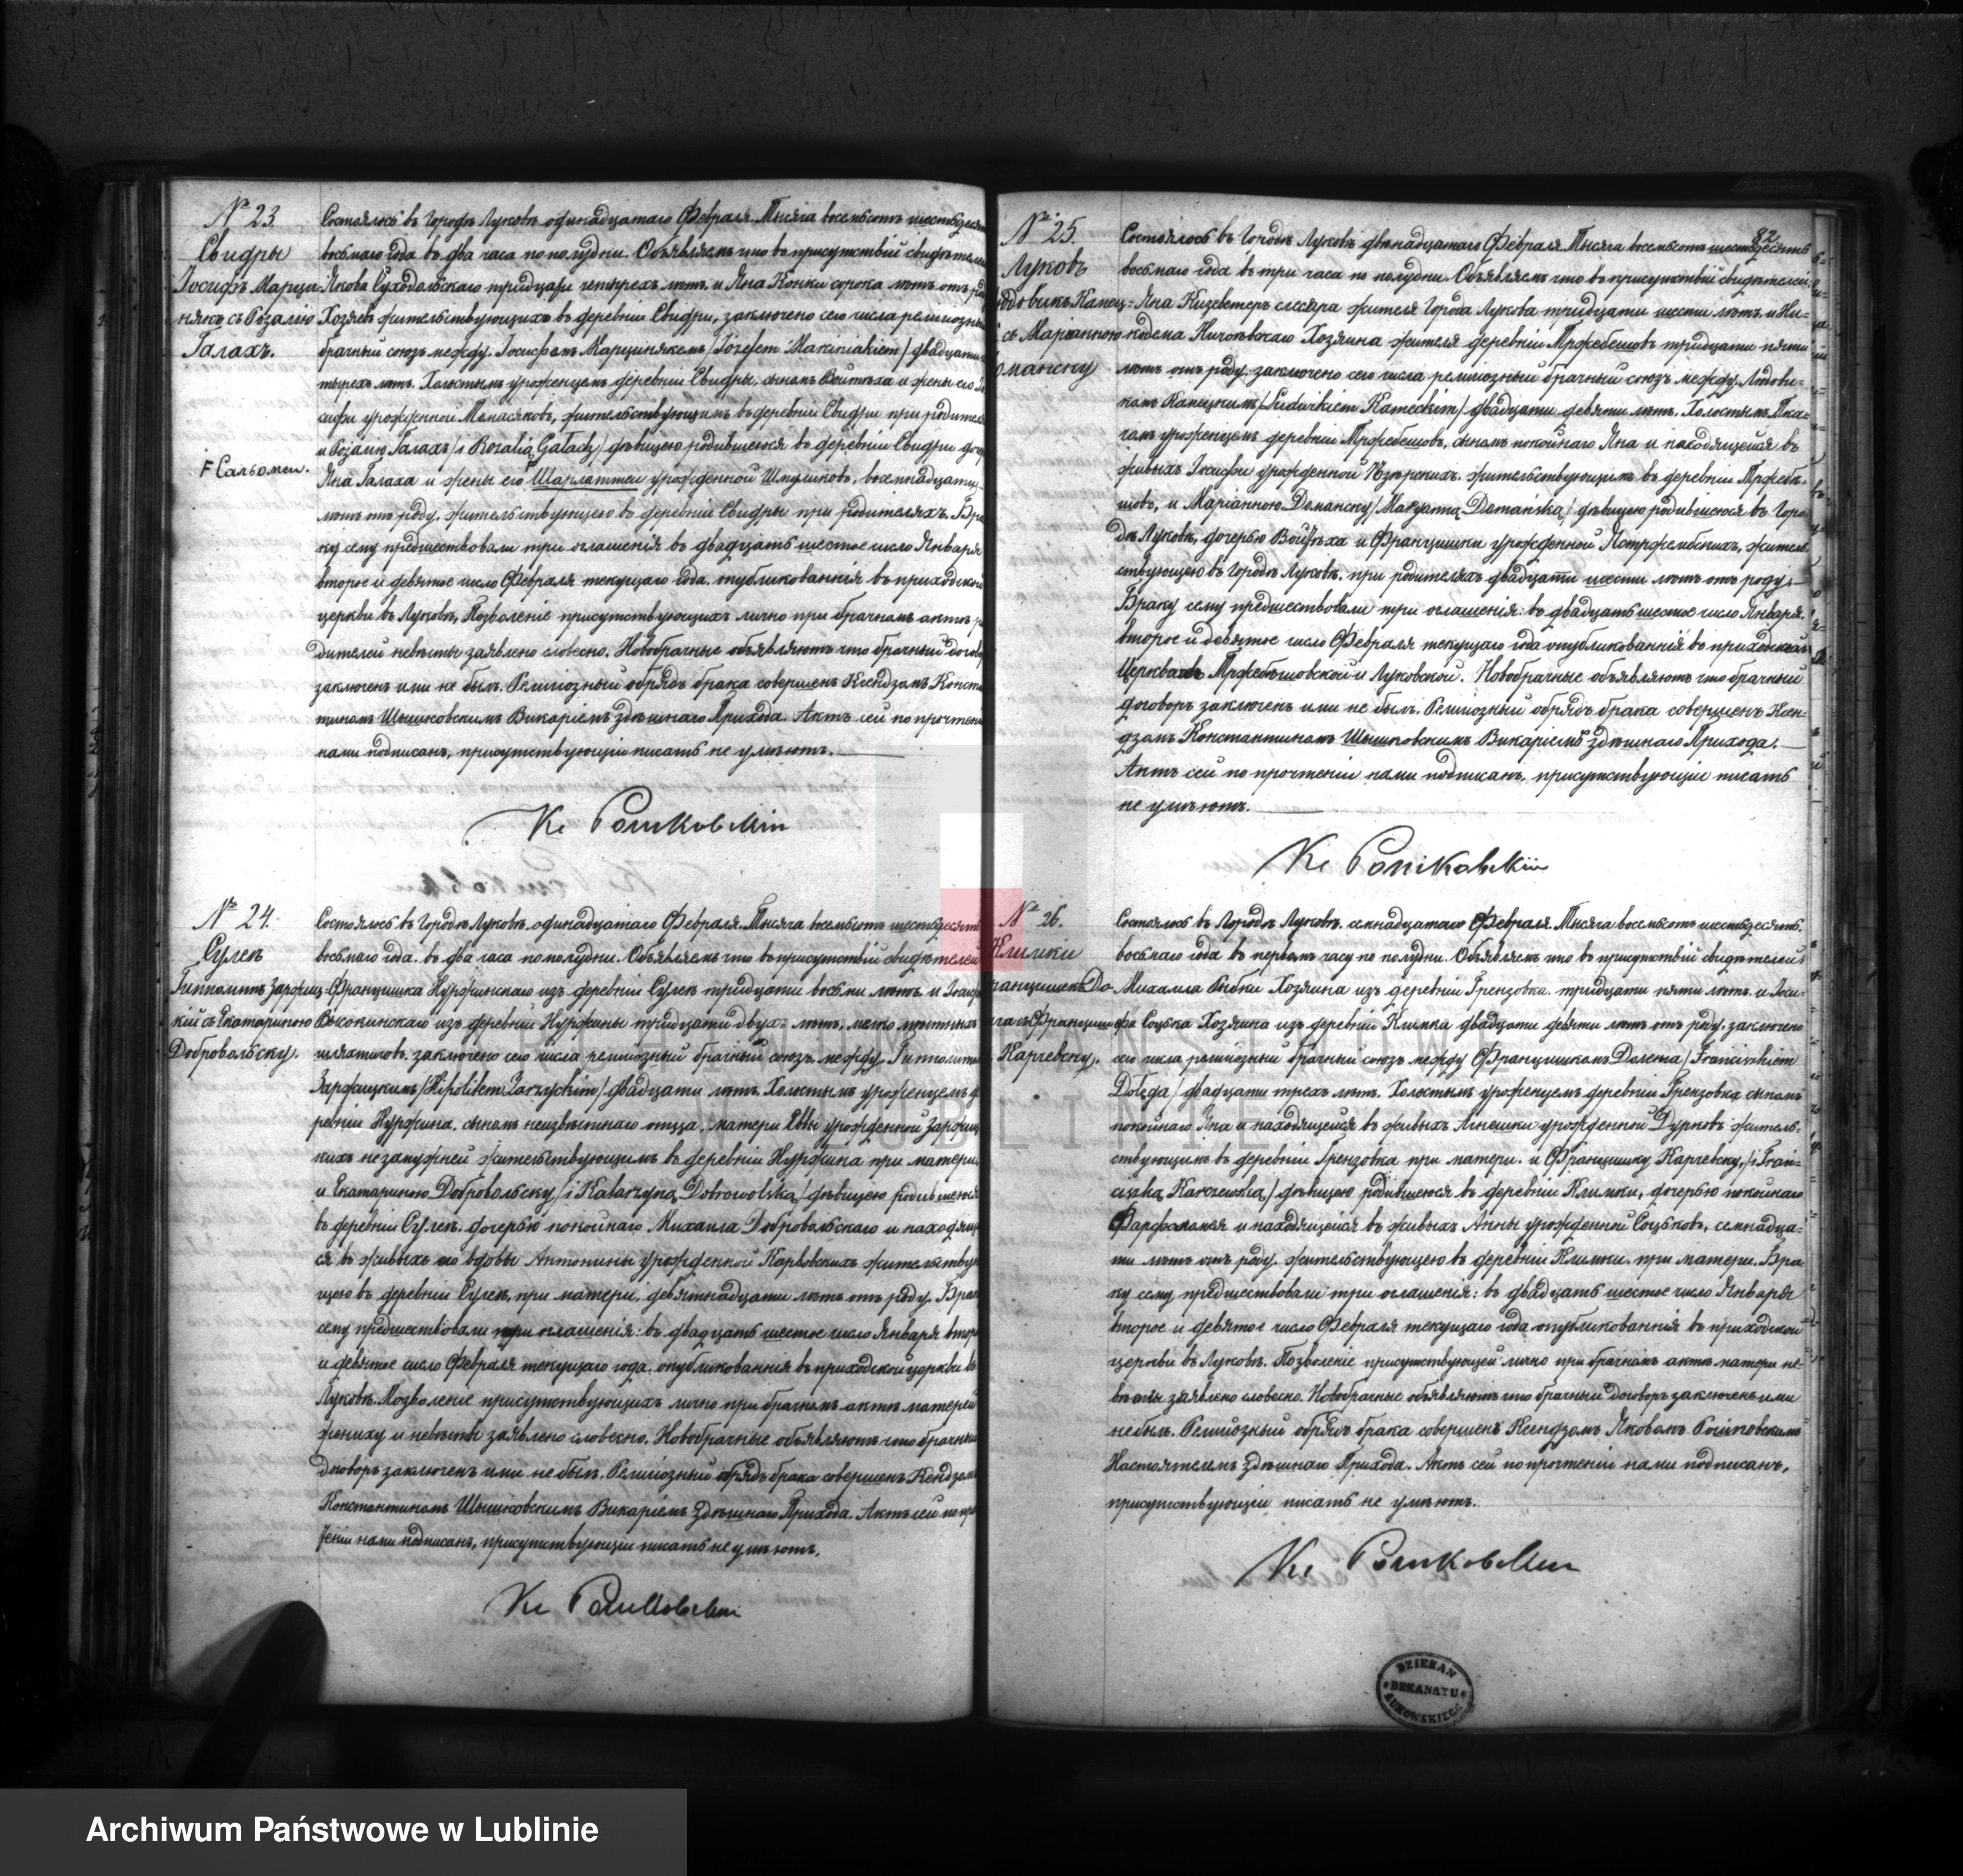 № 23.
Свидры
Іосифъ Марци-
някъ съ Розалію
Галахъ.
F Сальомеи.
Состоялось въ Городѣ Луковѣ одинадцатаго Февраля Тысяча восемьсотъ шестьдесят
восьмаго года въ два часа по полудни. Объявляемъ что въ присутствій свидѣтелей
Якова Суходольскаго тридцати четырехъ лѣтъ и Яна Конки сорока лѣтъ отъ ро
Хозяевъ жительствующихъ въ деревни Свидры, заключено сего числа религіозны
брачный союзъ между Іосифомъ Марцинякемъ /Józefem Marciniakiem/ двадцати
тырехъ лѣтъ Холостымъ урожденцемъ деревни Свидры, сыномъ Войтѣха и жены его
сифи урожденной Монасяковъ, жительствующимъ въ деревни Свидры при родител
и Розалію Галахъ /i Rozalią Gałach/ дѣвицею родившеюся въ деревни Свидры доч
Яна Галаха и жены его Шарлоттеи урожденной восемнадцати
лѣтъ отъ роду, жительствующею въ деревни Свидры при родителяхъ. Бра
ку сему предшествовали три оглашенія въ двадцать шестое число Января
второе и девятое число Февраля текущаго года опубликованнія въ приходской
церкви въ Луковѣ, Позволеніе присутствующихъ лично при брачномъ актѣ р
дителей невѣсты заявлено словесно. Новобрачные объявляютъ что брачный догов
заключенъ ими не былъ. Религіозный обрядъ брака совершенъ Ксендзомъ Конста
тиномъ Шышковскимъ Викаріемъ здѣшнаго Прихода. Актъ сей по прочтені
нами подписанъ, присутствующіи писать не умѣютъ.
Кс Рошковскіи
№ 24.
Сулек
Гипполитъ Заржиц-
кій съ Екатариною
Добровольску.
Состоялось въ Городѣ Луковѣ одинадцатаго Февраля Тысяча восемьсотъ шестьдесятъ
восьмаго года въ два часа по полудни. Объявляемъ что въ присутствій свидѣтелей
Францишка Нуржинскаго изъ деревни Сулек тридцати восьми лѣтъ и
Высокинскаго изъ деревни Нуржины тридцати двухъ лѣтъ,
шляхтичовъ, заключено сего числа религіозный брачный союзъ между Гипполитом
Заржицкимъ /Hipolitem Zarzyckim/ двадцати лѣтъ Холостымъ урожденцемъ д
ревни Нуржина, сыномъ неизвѣстнаго отца, матери Еввы урожденной Заржиц
кихъ незамужней жительствующимъ въ деревни Нуржина при матери,
и Екатариною Добровольску /i Katarzyną Dobrowolską/ дѣвицею родившеюся
въ деревни Сулек, дочерью покойнаго Михаила Добровольскаго и находящ
ся въ живыхъ его вдовы Антонины урожденной Карвовскихъ жительству
щею въ деревни Сулек, при матери, девятнадцати лѣтъ отъ роду. Бра
сему предшествовали три оглашенія: въ двадцать шестое число Января втор
и девятое число Февраля текущаго года, опубликованнія въ приходской церкви въ
Луковѣ. Позволеніе присутствующихъ лично при брачномъ актѣ матерей
жениху и невѣсты заявлено словесно. Новобрачные объявляютъ что брачный
договоръ заключенъ ими не былъ. Религіозный обрядъ брака совершенъ Ксендзом
Константиномъ Шышковскимъ Викаріемъ здѣшнаго Прихода. Актъ сей по про
теніи нами подписанъ, присутствующіи писать не умѣютъ.
Кс Рошковскіи
82
№ 25.
Луковъ
юдовикъ Канец-
съ Маріанною
оманску
Состоялось въ Городѣ Луковѣ двѣнадцатаго Февраля Тысяча восемьсотъ шестьдесятъ
восьмаго года въ три часа по полудни. Объявляемъ что въ присутствій свидѣтелей:
Яна Кизеветеръ слесаря жителя Города Лукова тридцати шести лѣтъ и Ни-
кодема Хозяина жителя деревни Тржебешовъ тридцати пяти
лѣтъ отъ роду, заключено сего числа религіозный брачный союзъ между Людови-
комъ Канецкимъ /Ludwikiem Kaneckim/ двадцати девяти лѣтъ Холостымъ Тка-
чомъ урожденцемъ деревни Тржебешовъ, сыномъ покойнаго Яна и находящейся въ
живыхъ Іосифи урожденной жительствующимъ въ деревни Тржебе-
шовъ, и Маріанною Доманску /Maryanną Domańską/ дѣвицею родившеюся въ Горо-
дѣ Луковѣ, дочерью Войтѣха и Францишки урожденной Ястржембскихъ, житель-
ствующею въ Городѣ Луковѣ при родителяхъ двадцати шести лѣтъ отъ роду.
Браку сему предшествовали три оглашенія: въ двадцать шестое число Января
второе и девятое число Февраля текущаго года опубликованнія въ приходскихъ
Церквахъ Тржебешовской и Луковской. Новобрачные объявляютъ что брачный
договоръ заключенъ ими не былъ. Религіозный обрядъ брака совершенъ Ксен-
дзомъ Константиномъ Шышковскимъ Викаріемъ здѣшнаго Прихода.
Актъ сей по прочтеніи нами подписанъ, присутствующіи писать
не умѣютъ.
Кс Рошковскіи
№ 26.
Климки
ранцишекъ До-
га съ Францишк
Карчевску.
Состоялось въ Городѣ Луковѣ семнадцатаго Февраля Тысяча восемьсотъ шестьдесятъ
восьмаго года въ первомъ часу по полудни. Объявляемъ что въ присутствій свидѣтелей:
Михаила Рыбки Хозяина изъ деревни Грензовка тридцати пяти лѣтъ и Іоси-
фа Соцька Хозяина изъ деревни Климка двадцати девяти лѣтъ отъ роду, заключено
сего числа религіозный брачный союзъ между Францишкомъ Доленга /Franciszkiem
Dołęgą/ двадцати трехъ лѣтъ Холостымъ урожденцемъ деревни Грензовка сыномъ
покойнаго Яна и находящейся въ живыхъ Агнешки урожденной Дурковъ житель-
ствующимъ въ деревни Грензовка при матери, и Францишку Карчевску, /i Fran-
ciszką Karczewską/ дѣвицею родившеюся въ деревни Климки, дочерью покойнаго
и находящейся въ живыхъ Анны урожденной Соцьковъ, семнадца-
ти лѣтъ отъ роду, жительствующею въ деревни Климки, при матери. Бра
ку сему предшествовали три оглашенія: въ двадцать шестое число Января
второе и девятое число Февраля текущаго года опубликованнія въ приходской
церкви въ Луковѣ. Позволеніе присутствующей лично при брачномъ актѣ матери не-
вѣсты заявлено словесно. Новобрачные объявляютъ что брачный договоръ заключенъ ими
не былъ. Религіозный обрядъ брака совершенъ Ксендзомъ Яковомъ Рошковскимъ
Настоятелемъ здѣшнаго Прихода. Актъ сей по прочтеніи нами подписанъ,
присутствующіи писать не умѣютъ.
Кс Рошковскіи
DZIEKAN
DEKANATU
ŁUKOWSKIEGO
ARCHIWUM PAŃSTWOWE
W LUBLINIE
Archiwum Państwowe w Lublinie